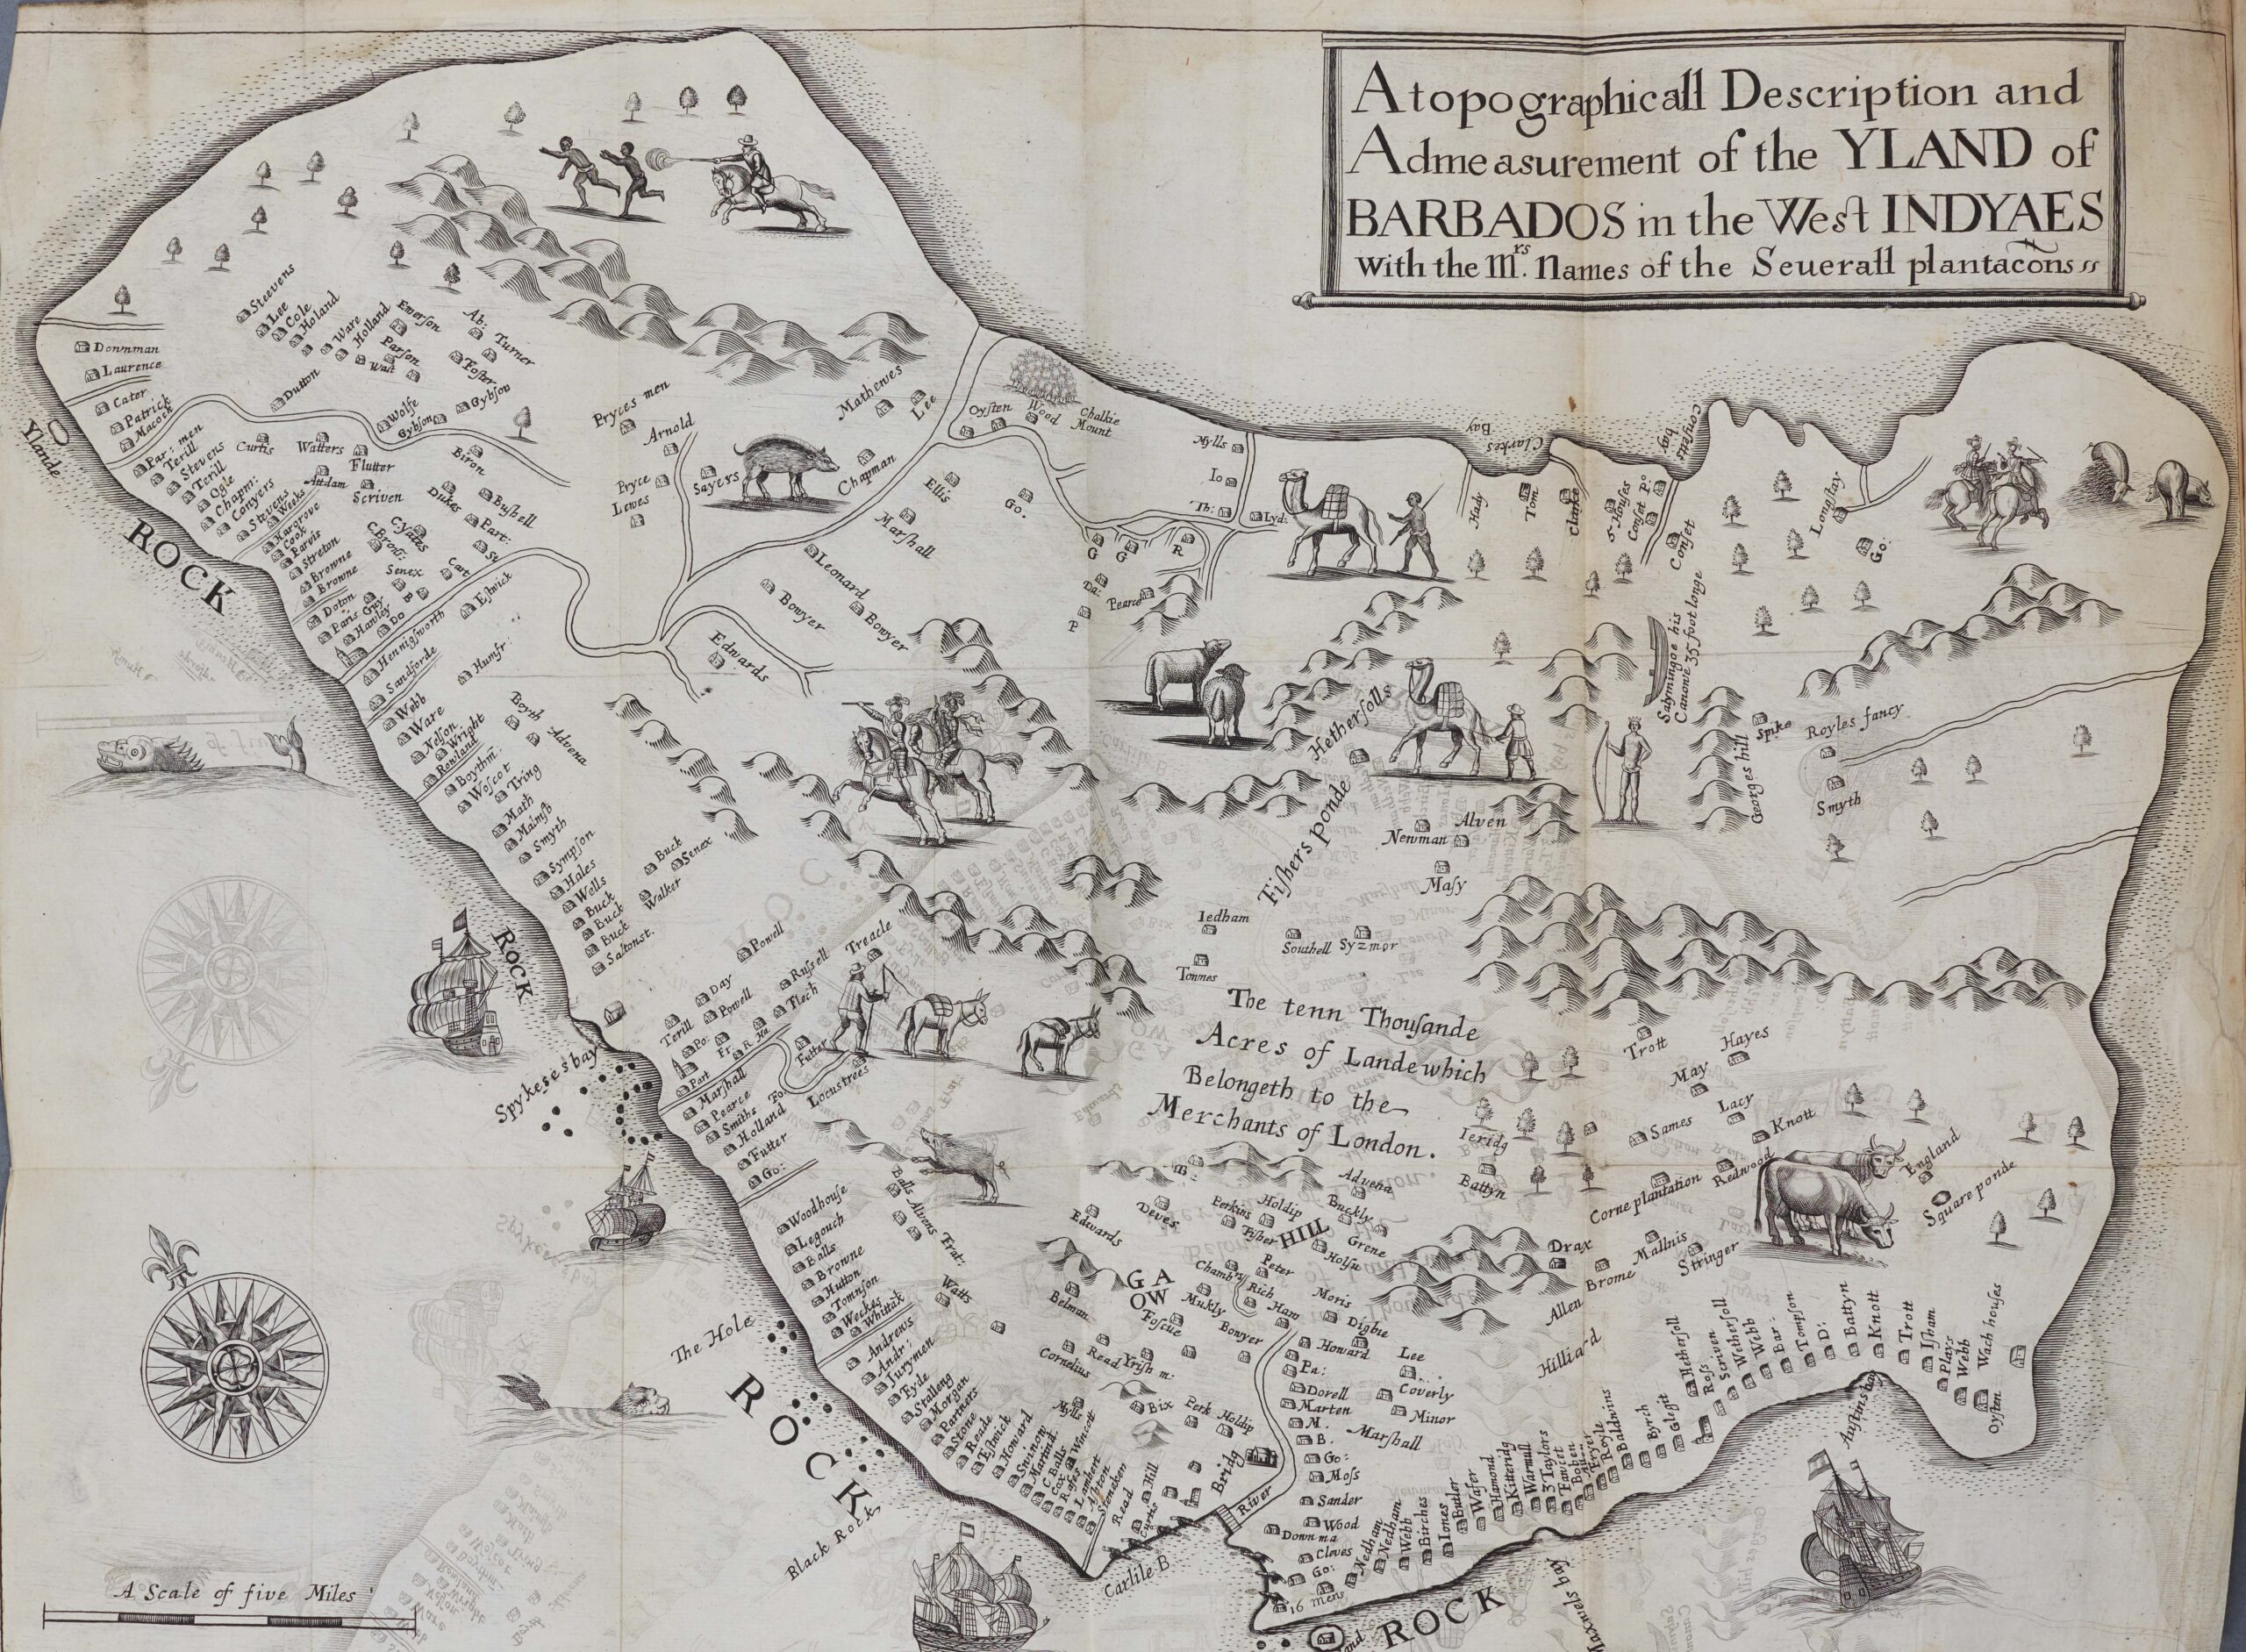 A topographicall Description and
Admeasurement of the YLAND of
BARBADOS in the West INDYAES
With the Mrs. Names of the Seuerall plantacons
Steevens
Lee
Cole
Holand
Ware
Holland
Emerson
Parson
Walt
Ab:
Turner
Foster
Gybson
Dutton
Wolfe
Gybson
Downman
Laurence
Cater
Patrick
Macock
Ylande
Par: men
Terill
Stevens
Terill
Ogle
Chapm:
Conyers
Stevens
Weeks
Hargrove
Cook
Parvis
Streton
Browne
Browne
Curtis
Watters
Flutter
Attdam
Scriven
Biron
Dukes
Bushell
Part:
St
C. Yates
C. Brow:
Senex
Cart
B
Doton
Paris Guy
Hawley
Do
Hennigsworth
Estwick
Sandforde
Humfr:
ROCK
Webb
Ware
Nelson
Wright
Rowland
Boythm.
Woscot
Tring
Boyth
Advena
Math
Malmsb
Smyth
Sympson
Hales
Wells
Buck
Buck
Buck
Saltonst.
Buck
Senex
Walker
Pryces men
Arnold
Pryce
Lewes
Sayers
Mathewes
Lee
Chapman
Ellis
Marshall
Go.
Leonard
Bowyer
Bowyer
Edwards
Oysten
Wood
Chalkie
Mount
Mylls
Io
Th:
Lyd:
G
G
R
Da:
Pearce
P
Clarkes
Bay
Hady
Tom.
Clarke
5-Houses
Conset Po
Consetts
bay
Conset
Longstay
Go:
Salymingoe his
Canonie 35 foot longe
Georges hill
Spike
Royles fancy
Smyth
Hethersolls
Fishers ponde
Newman
Alven
Masy
Iedham
Southell
Syzmor
Townes
The tenn Thousande
Acres of Lande which
Belongeth to the
Merchants of London.
ROCK
Powell
Day
Powell
Russell
Treacle
Flech
Terill
Po:
Fr.
R. Ha
Futter
Part
Marshall
Pearce
Smiths
Fo
Holland
Futter
Go:
Locustrees
Spykeses bay
Woodhouse
Legouch
Balls
Browne
Hutton
Tomnson
Weekes
Whittak
Balls
Alvens
Frat:
Watts
The Hole
ROCK
Black Rock
Andrews
Andr:
Jurymen
Fyde
Stalleng
Morgan
Partners
Stone
Reade
Estwick
Howard
Swinow
Martind.
C Balls
Cox
Wincott
Rafes
Lambert
Ashton
Stoneken
Read
Hill
Curtis
Mylls
Edwards
Deves
B
Perkins
Holdip
Advena
Buckly
Fisher
HILL
Grene
Holsu
Peter
Chamb
Rich
Ham
Moris
Digbie
GA
OW
Mukly
Foscue
Bowyer
Belman
Cornelius
Read
Yrish m:
Bix
Perk
Holdip
Bridg
River
Carlile B
Howard
Pa:
Dorell
Marten
M.
B.
Go:
Moss
Sander
Wood
Downma
Cleves
Go:
16 mens
Lee
Coverly
Minor
Marshall
Ieridg
Battyn
Trott
Hayes
May
Lacy
Sames
Knott
Redwood
England
Square ponde
Corne plantation
Drax
Mallnis
Stringer
Brome
Allen
Hilliard
Nedham
Nedham
Webb
Birches
Iones
Butler
Wafer
Hamond
Kitteridg
Warmll
3 Taylors
Fawcet
Boben
Allin
Fryer
Royle
Baldwins
Byrch
Glegit
Hethersoll
Ross
Scriven
Wethersoll
Webb
Bar:
Tompson
D:
Battyn
Knott
Trott
Isham
Plays
Webb
Wach houses
Oysten
Austins bay
Maxwels bay
ROCK
A Scale of five Miles